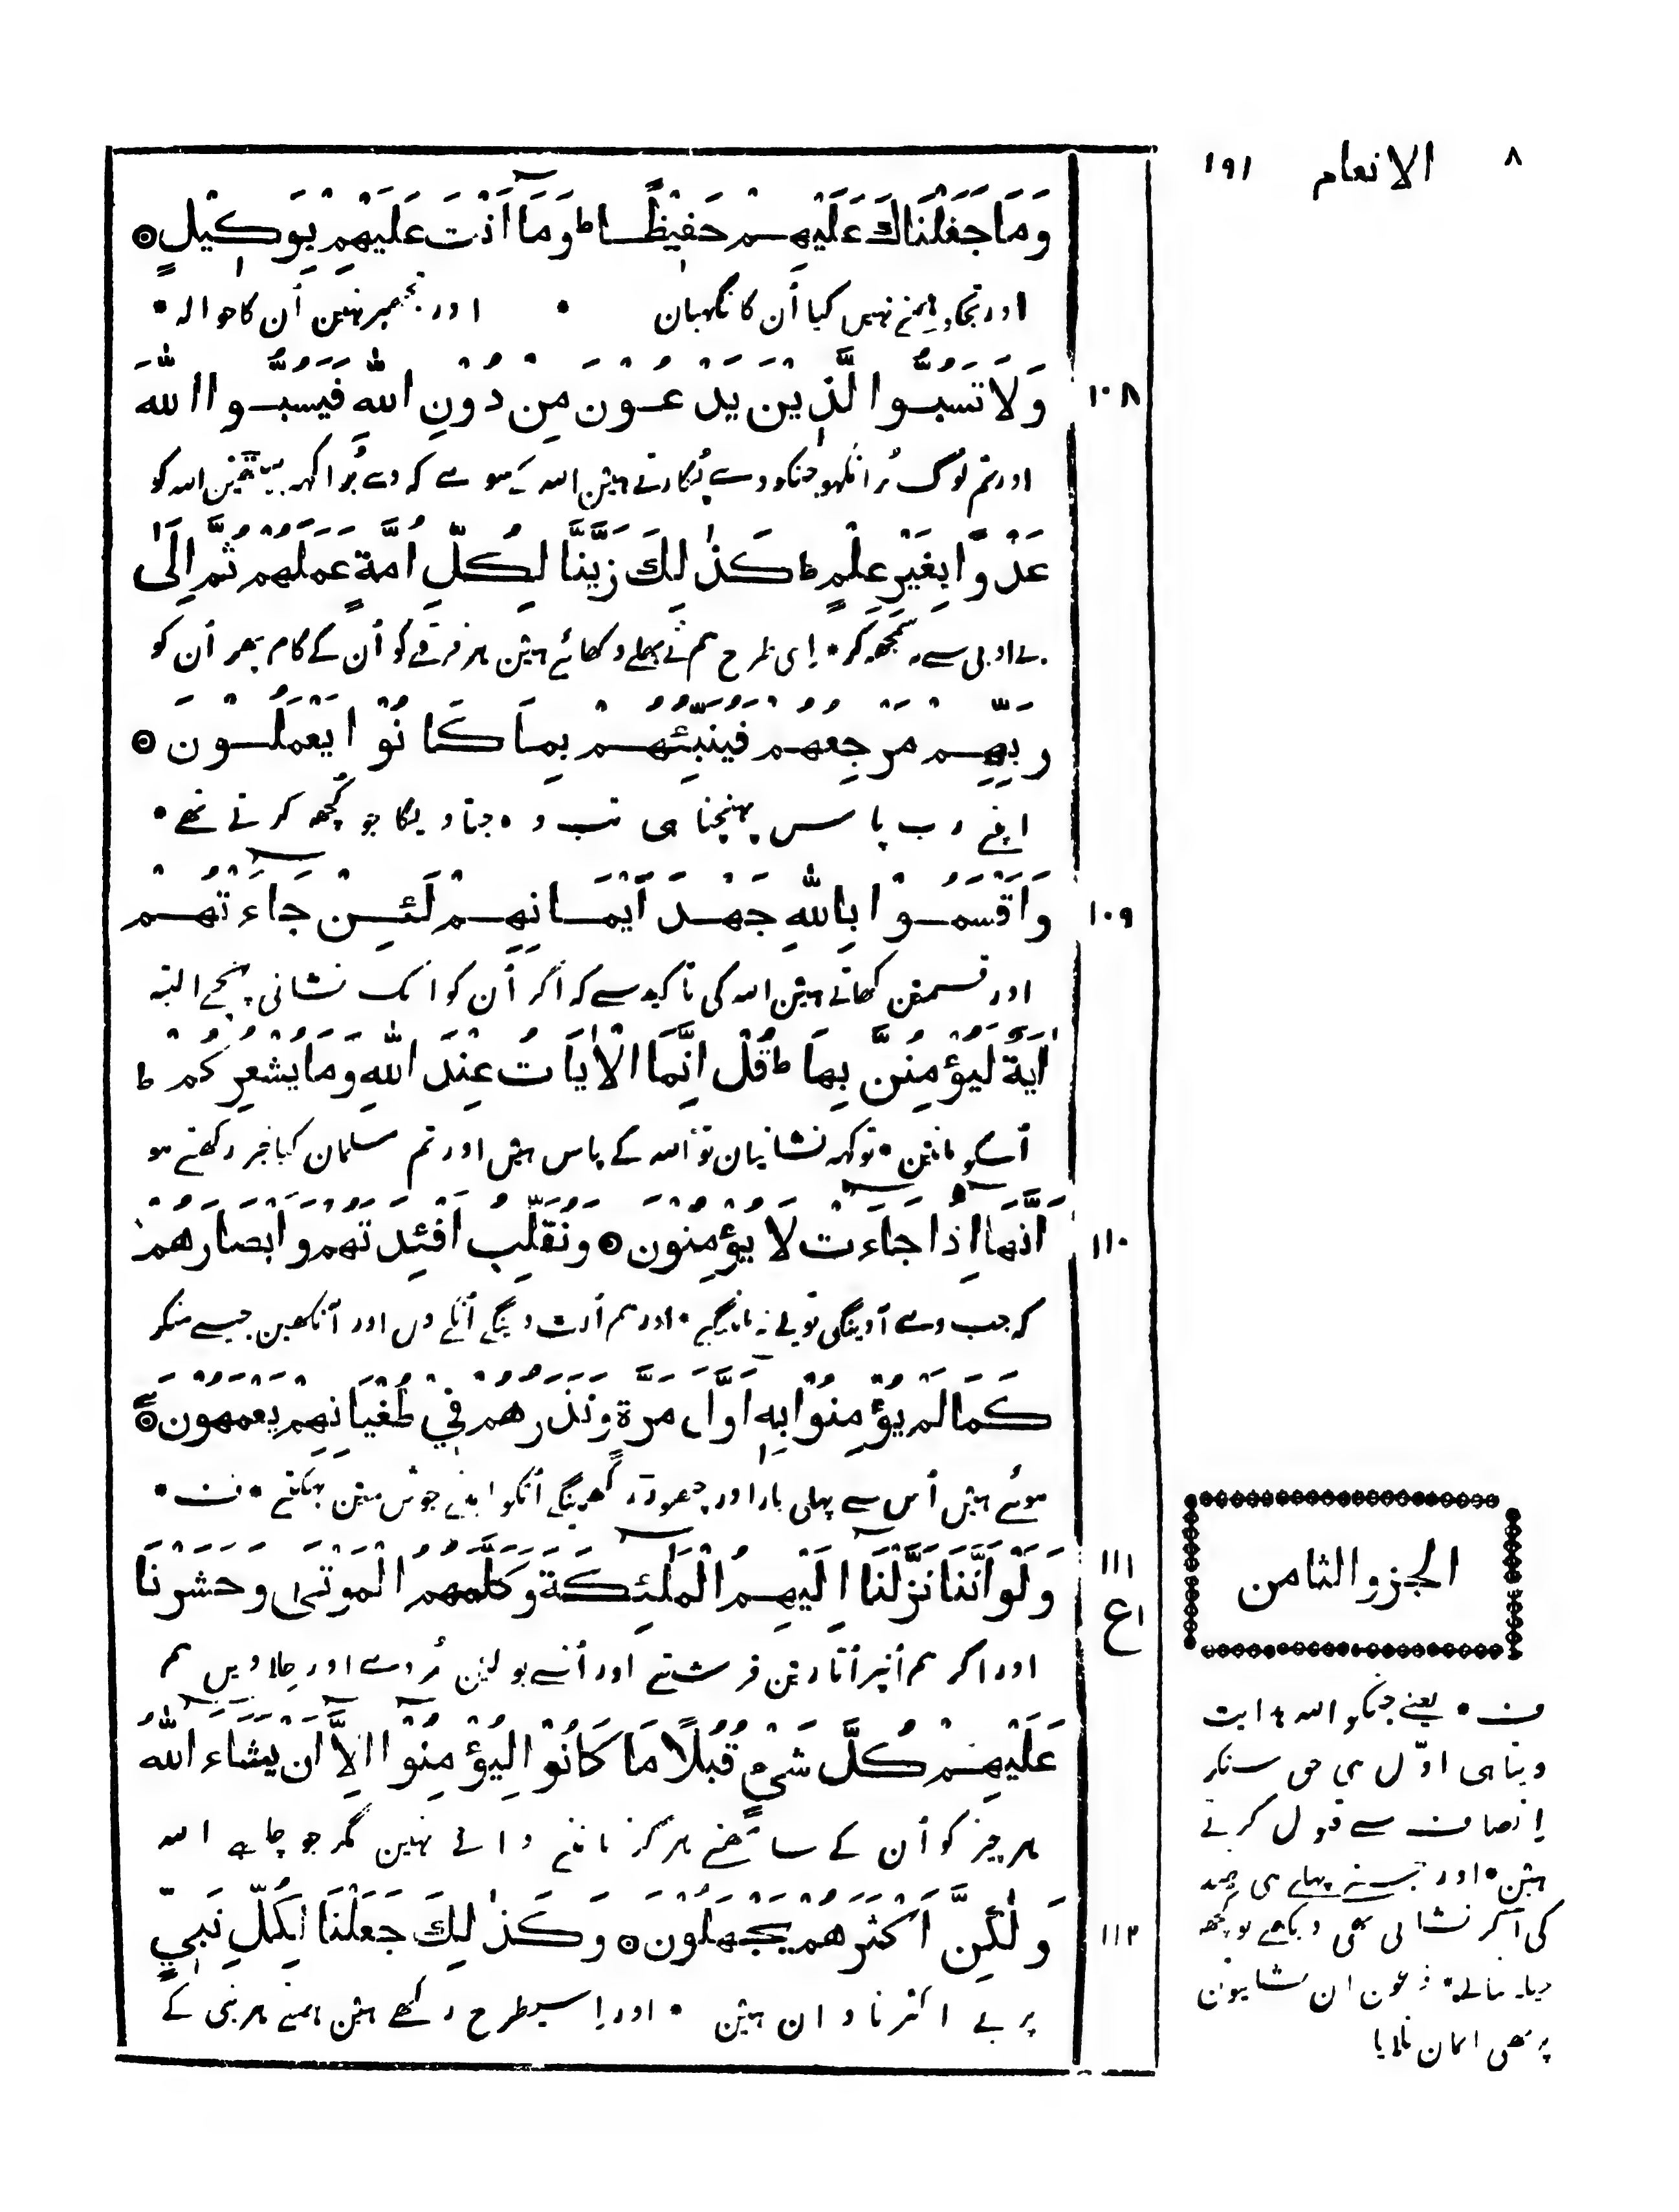 ٨ الانعام ١٩١
وَمَا جَعَلْنَاكَ عَلَيْهِمْ حَفِيْظًا ط وَمَآ اَنْتَ عَلَيْهِمْ بِوَكِيْلٍ ۝
اور تجکو ہمنے نہیں کیا اُن کا نگہبان • اور تجھپر نہین اُن کا حوالہ •
١٠٨ وَلَا تَسُبُّوا الَّذِيْنَ يَدْعُوْنَ مِنْ دُوْنِ اللّٰهِ فَيَسُبُّوا اللّٰهَ
اور تم لوگ بُرا نکہو جنکو وے پُکارتے ہین اللہ کے سوے کہ وے بُرا کہہ بیٹھین اللہ کو
عَدْوًا بِغَيْرِ عِلْمٍ ط كَذٰلِكَ زَيَّنَّا لِكُلِّ اُمَّةٍ عَمَلَهُمْ ثُمَّ اِلٰى
بے ادبی سے نہ سمجھ کر • اِسی طرح ہم نے بھلے دکھائے ہین ہر فرقے کو اُن کے کام پھر اُن کو
رَبِّهِمْ مَرْجِعُهُمْ فَيُنَبِّئُهُمْ بِمَا كَانُوْا يَعْمَلُوْنَ ۝
اپنے رب پاس پہنچنا ہی تب وہ جتا دیگا جو کُچھ کرتے تھے •
١٠٩ وَاَقْسَمُوْا بِاللّٰهِ جَهْدَ اَيْمَانِهِمْ لَئِنْ جَآءَتْهُمْ
اور قسمین کھاتے ہین اللہ کی تاکید سے کہ اگر اُن کو ایک نشانی پہنچے البتہ
اٰيَةٌ لَيُؤْمِنُنَّ بِهَا ط قُلْ اِنَّمَا الْاٰيَاتُ عِنْدَ اللّٰهِ وَمَا يُشْعِرُكُمْ ط
اُسکو مانین • تو کہہ نشانیان تو اللہ کے پاس ہیں اور تم مسلمان کیا خبر رکھتے ہو
١١٠ اَنَّهَآ اِذَا جَآءَتْ لَا يُؤْمِنُوْنَ ۝ وَنُقَلِّبُ اَفْئِدَتَهُمْ وَاَبْصَارَهُمْ
کہ جب وے آوینگی تو یے نہ مانینگے • اور ہم اُلٹ دینگے اُنکے دل اور آنکھین جیسے منکر
كَمَا لَمْ يُؤْمِنُوْا بِهٖٓ اَوَّلَ مَرَّةٍ وَنَذَرُهُمْ فِيْ طُغْيَانِهِمْ يَعْمَهُوْنَ ۝
ہوئے ہیں اُس سے پہلی بار اور چھوڑ رکھینگے اُنکو اپنے جوش مین بہکتے • ف •
١١١ وَلَوْ اَنَّنَا نَزَّلْنَآ اِلَيْهِمُ الْمَلٰٓئِكَةَ وَكَلَّمَهُمُ الْمَوْتٰى وَحَشَرْنَا
١ع
اور اگر ہم اُنپر اُتارین فرشتے اور اُنسے بولین مُردے اور جِلاویں ہم
عَلَيْهِمْ كُلَّ شَيْءٍ قُبُلًا مَا كَانُوْا لِيُؤْمِنُوْٓا اِلَّآ اَنْ يَشَآءَ اللّٰهُ
ہر چیز کو اُن کے سامھنے ہرگز ماننے والے نہین مگر جو چاہے اللہ
١١٢ وَلٰكِنَّ اَكْثَرَهُمْ يَجْهَلُوْنَ ۝ وَكَذٰلِكَ جَعَلْنَا لِكُلِّ نَبِيٍّ
پر یے اکثر نادان ہین • اور اِسیطرح رکھے ہین ہمنے ہر نبی کے
الجزو الثامن
ف • یعنے جنکو اللہ ہدایت
دیتا ہی اوّل ہی حق سنکر
اِنصاف سے قبول کرتے
ہین • اور جسنے پہلے ہی ضد
کی اگر نشانی بھی دیکھے تو کچھ
حیلہ بنالے • فرعون ان نشانیون
پر بھی ایمان نلایا